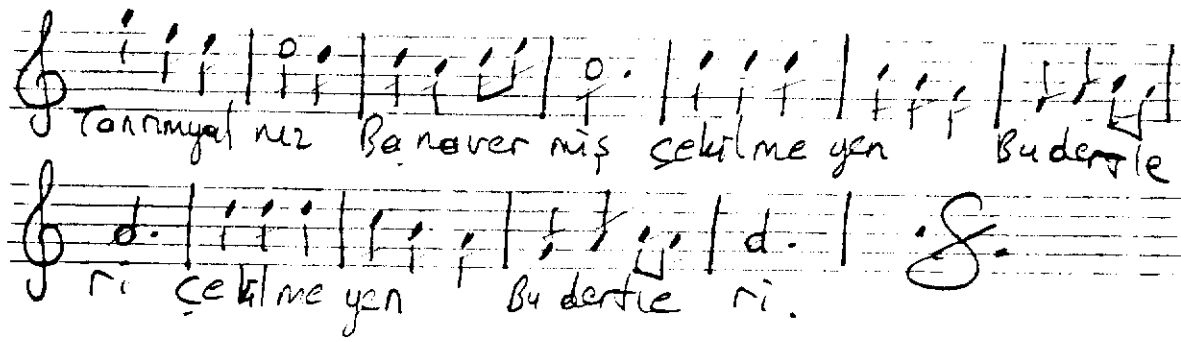 Tanrımyal nız Banaver miş çekilme yen Budertle
ri çekilme yen Bu dertle ri.